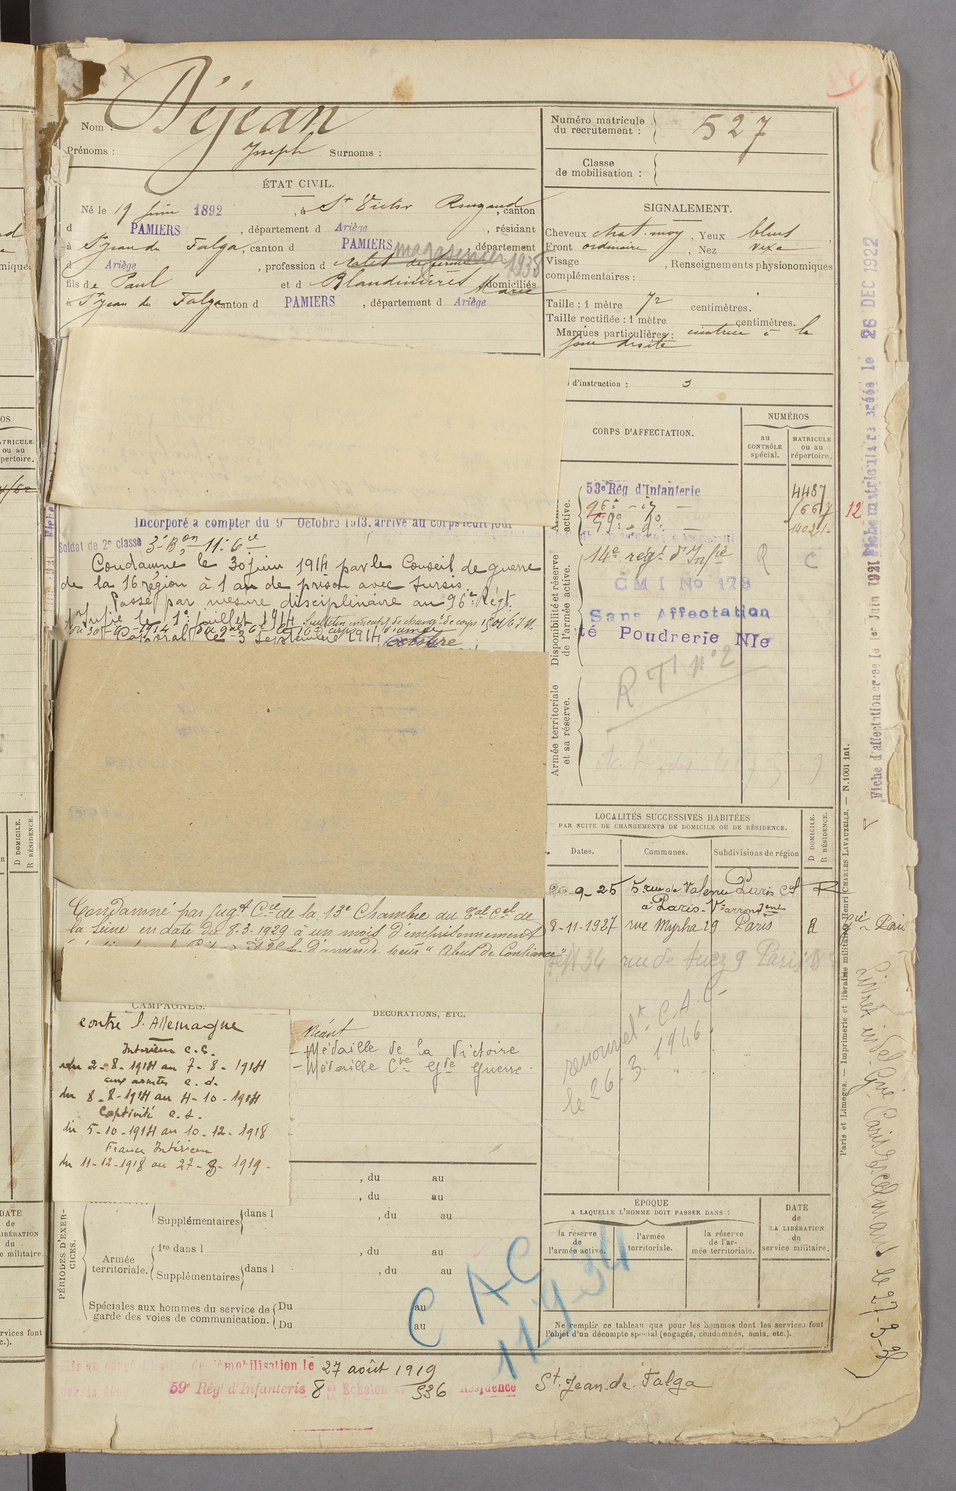 Nom : Déjean
Prénoms : Joseph Surnoms :
Numéro matricule du recrutement : 527
Classe de mobilisation :
ÉTAT CIVIL.
Né le 19 juin 1892, à St Victor Rouzaud, canton
d PAMIERS, département d Ariège, résidant
à St Jean de Falga, canton d PAMIERS, département
d Ariège, profession d magasinier 1938
fils de Paul et d Blandinières Marie domiciliés
à St Jean de Falga canton d PAMIERS, département d Ariège
SIGNALEMENT.
Cheveux chat. moy, Yeux bleus
Front ordinaire, Nez vexe
Visage , Renseignements physionomiques
complémentaires :
Taille : 1 mètre 72 centimètres.
Taille rectifiée : 1 mètre centimètres.
Marques particulières : cicatrice à la
joue droite
d'instruction : 3
CORPS D'AFFECTATION.
NUMÉROS
au CONTRÔLE spécial.
MATRICULE ou au répertoire.
53e Rég d'Infanterie 4487
96e - dº - 1667
59º - dº - 14021
14e régt d'Infie R C
CMI No 178
Sans Affectation
té Poudrerie Nle
R T1 nº 2
active.
Disponibilité et réserve de l'armée active.
Armée territoriale et sa réserve.
Incorporé à compter du 9 Octobre 1913. arrivé au corps ledit jour
Soldat de 2e classe 3e Bon 11e Cie
Condamné le 30 juin 1914 par le Conseil de guerre
de la 16 région à 1 an de prison avec sursis.
Passé par mesure disciplinaire au 96e Régt
d'Infie le 1er juillet 1914
Caporal le 3 septembre 1914
Condamné par jugt Cel de la 13e Chambre du Tal Cel de
la Seine en date du 8-3-1929 à un mois d'emprisonnement
d'amende pour "Abus de Confiance"
LOCALITÉS SUCCESSIVES HABITÉES
PAR SUITE DE CHANGEMENTS DE DOMICILE OU DE RÉSIDENCE.
Dates. Communes. Subdivisions de région
D DOMICILE. R RÉSIDENCE.
-9-25 5 rue de Valence Paris Cal R
à Paris - Ve arrondment
8-11-1927 rue Myrha 29 Paris R
Sept 34 rue de Suez 9 Paris 18e
renouvelt C.A.C
le 26-3.1946
CAMPAGNES.
contre l'Allemagne
Intérieur C.S.
du 2-8-1914 au 7-8-1914
aux armées C.d.
du 8-8-1914 au 4-10-1914
Captivité C.S.
du 5-10-1914 au 10-12-1918
France Intérieur
du 11-12-1918 au 27-8-1919.
DÉCORATIONS, ETC.
Néant
- Médaille de la Victoire
- Médaille Cve Gde Guerre.
, du au
, du au
PÉRIODES D'EXERCICES.
Supplémentaires dans l , du au
Armée territoriale.
1re dans l , du au
Supplémentaires dans l , du au
Spéciales aux hommes du service de garde des voies de communication. Du au
Du au
C A C
11-9-34
ÉPOQUE
A LAQUELLE L'HOMME DOIT PASSER DANS :
la réserve de l'armée active.
l'armée territoriale.
la réserve de l'armée territoriale.
DATE de LA LIBÉRATION du service militaire.
Ne remplir ce tableau que pour les hommes dont les services font
l'objet d'un décompte spécial (engagés, condamnés, omis, etc.).
démobilisation le 27 août 1919
59e Rég d'Infanterie 8 Echelon 536 Résidence St Jean de Falga
Fiche matriculaire créée le 26 DEC 1922
Fiche d'affectation créée le 1er Juin 1921
12
Paris et Limoges. — Imprimerie et librairie militaires Henri CHARLES-LAVAUZELLE. — N. 1001 int.